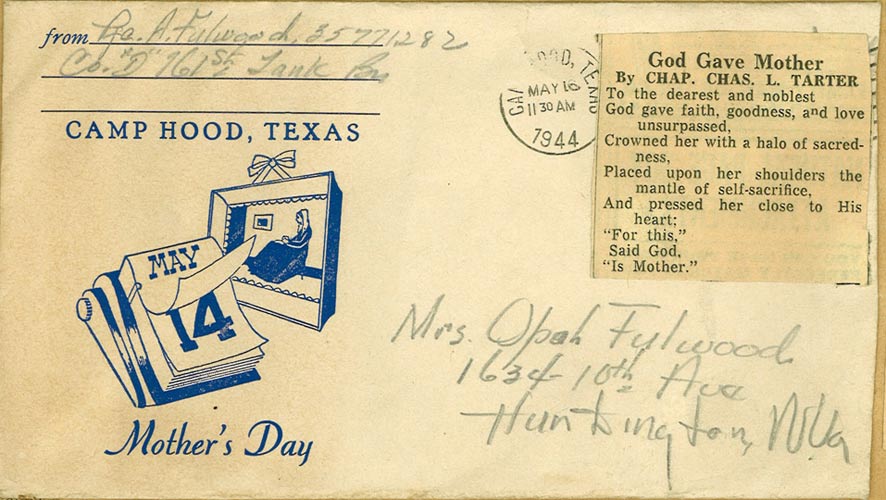 from Ga. A. Fulwood. 35771282
Co. "D" 761st Tank Bn
CAMP HOOD, TEXAS
HOOD, TEXAS
MAY 16
11 30 AM
1944
God Gave Mother
By CHAP. CHAS. L. TARTER
To the dearest and noblest
God gave faith, goodness, and love
unsurpassed,
Crowned her with a halo of sacred-
ness,
Placed upon her shoulders the
mantle of self-sacrifice,
And pressed her close to His
heart;
"For this,"
Said God,
"Is Mother."
MAY
14
Mother's Day
Mrs. Opah Fulwood
1634- 10th Ave
Huntington, W.Va